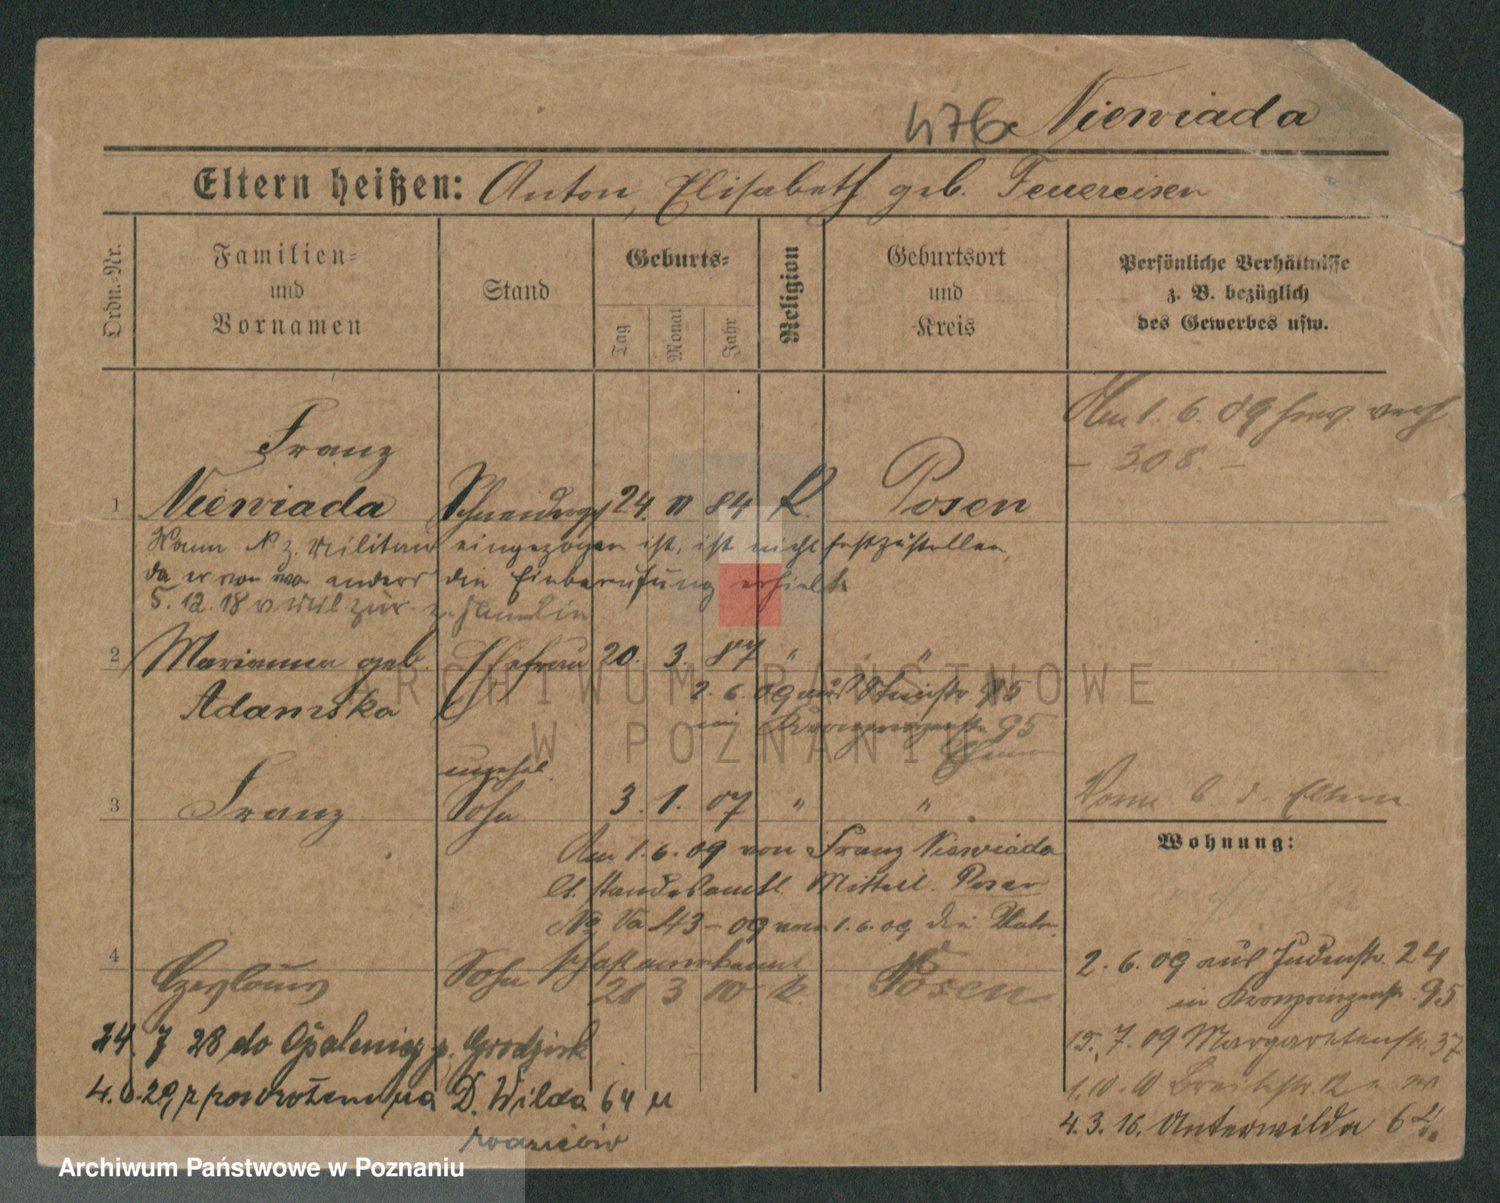 476 Niewiada
Eltern heißen: Anton, Elisabeth geb. Feuereisen
Ordn.-Nr.
Familien-
und
Vornamen
Stand
Geburts-
Tag
Monat
Jahr
Religion
Geburtsort
und
Kreis
Persönliche Verhältnisse
z. B. bezüglich
des Gewerbes usw.
Am 1. 6. 09
– 308. –
Franz
1 Niewiada Schneiderges 24. 11 84 K. Posen
Wann N z. Militär eingezogen ist, ist nicht festzustellen,
da er von wo anders die Einberufung erhielt
5. 12. 18 v Mil zur. z. Familie
2 Marianna geb. Ehefrau 20. 3. 87 " "
Adamska
2. 6. 09 aus 95
in Kronprinzenstr. 95
unehel.
3 Franz Sohn 3. 1. 07 " "
b. d. Eltern
Wohnung:
Am 1. 6. 09 von Franz Niewiada
lt. standesamtl. Mitteil. Posen
No Va 43 – 09 vom 1. 6. 09 die Vater-
schaft anerkannt
4 Czeslaus Sohn 21 3 10 k. Posen
2. 6. 09 aus Judenstr. 24
in Kronprinzenstr. 95
15. 7. 09 Margaretenstr. 37
1. 10. 11 Breitestr. 12
4. 3. 16. Unterwilda 64
24. 7 28 do Opalenicy p. Grodzisk
4. 6. 29, z powrotem na D. Wilda 64 u
rodziców
ARCHIWUM PAŃSTWOWE
W POZNANIU
Archiwum Państwowe w Poznaniu